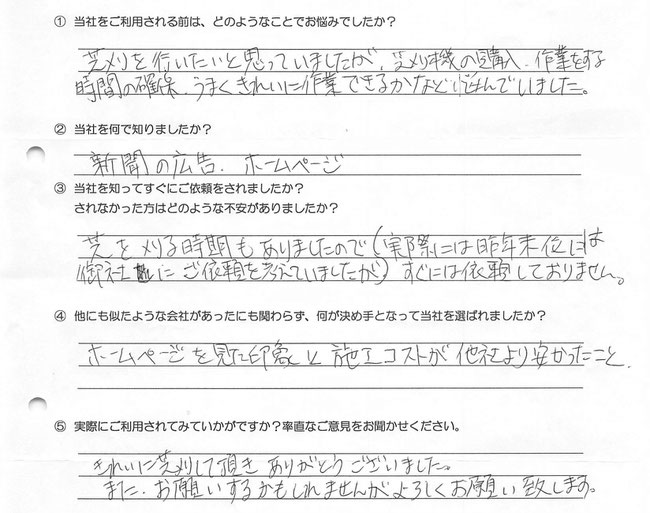 ① 当社をご利用される前は、どのようなことでお悩みでしたか？
芝刈りを行いたいと思っていましたが、芝刈り機の購入、作業をする
時間の確保、うまくきれいに作業できるかなど悩んでいました。
② 当社を何で知りましたか？
新聞の広告、ホームページ
③ 当社を知ってすぐにご依頼をされましたか？
されなかった方はどのような不安がありましたか？
芝を刈る時期もありましたので（実際には昨年末位には
御社にご依頼を考えていましたが）すぐには依頼しておりません。
④ 他にも似たような会社があったにも関わらず、何が決め手となって当社を選ばれましたか？
ホームページを見た印象と施工コストが他社より安かったこと．
⑤ 実際にご利用されてみていかがですか？率直なご意見をお聞かせください。
きれいに芝刈して頂きありがとうございました。
また、お願いするかもしれませんがよろしくお願い致します。